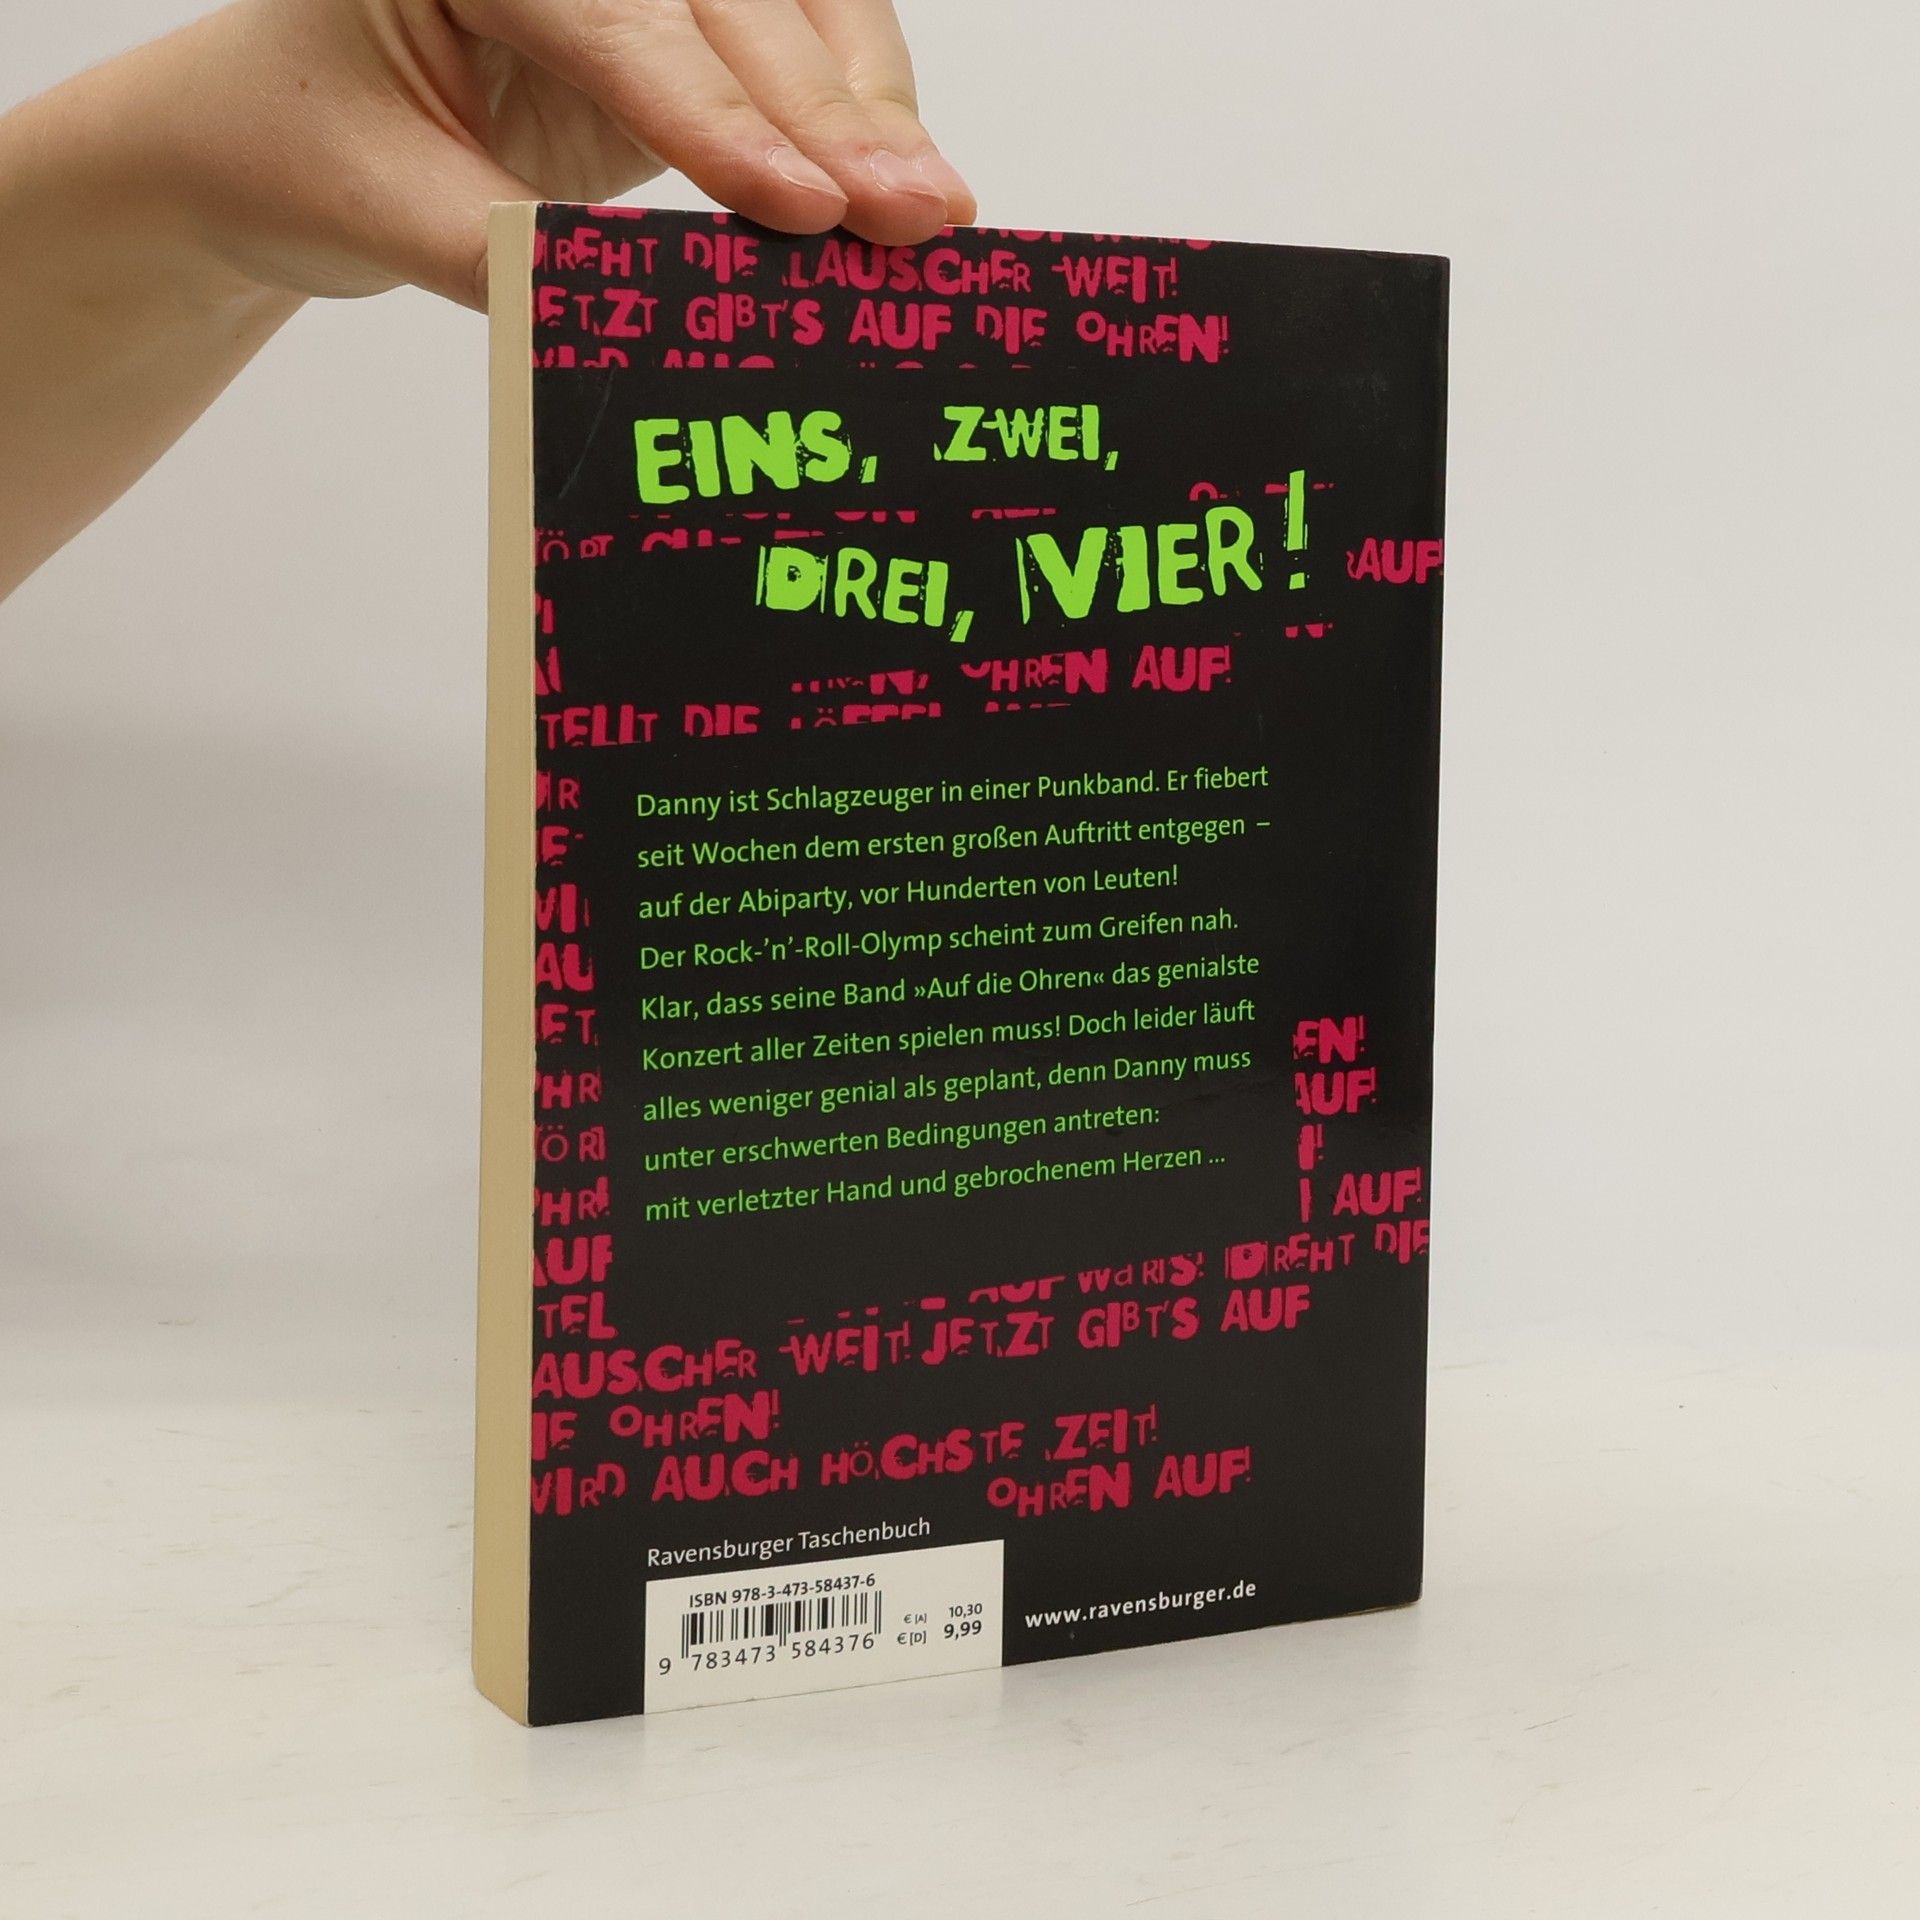 DREHT DIE LAUSCHER WEIT!
JETZT GIBT'S AUF DIE OHREN!
EINS, ZWEI,
DREI, VIER!
AUF!
OHREN AUF!
STELLT DIE LÖFFEL
Danny ist Schlagzeuger in einer Punkband. Er fiebert
seit Wochen dem ersten großen Auftritt entgegen –
auf der Abiparty, vor Hunderten von Leuten!
Der Rock-’n’-Roll-Olymp scheint zum Greifen nah.
Klar, dass seine Band »Auf die Ohren« das genialste
Konzert aller Zeiten spielen muss! Doch leider läuft
alles weniger genial als geplant, denn Danny muss
unter erschwerten Bedingungen antreten:
mit verletzter Hand und gebrochenem Herzen ...
AUF!
AUF!
AUFWÄRTS! DREHT DIE
LAUSCHER WEIT! JETZT GIBT'S AUF
DIE OHREN!
WIRD AUCH HÖCHSTE ZEIT!
OHREN AUF!
Ravensburger Taschenbuch
ISBN 978-3-473-58437-6
€ [A] 10,30
€ [D] 9,99
9 783473 584376
www.ravensburger.de